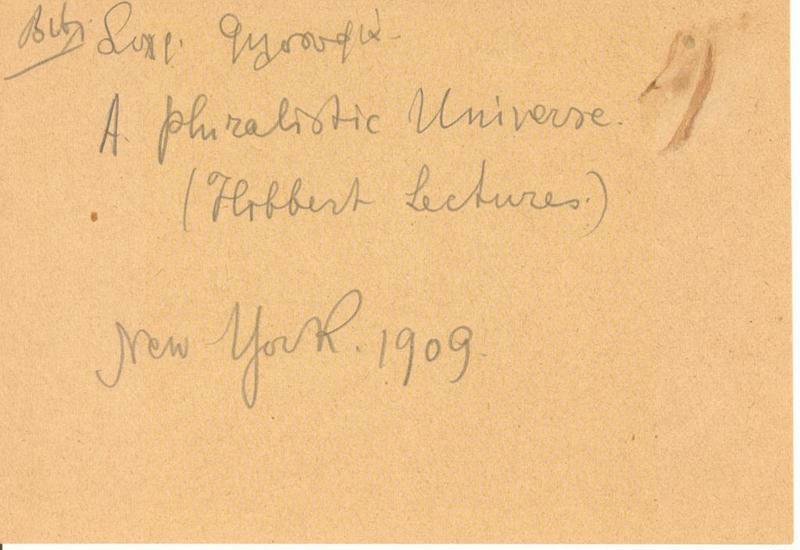 A pluralistic Universe.
(Hibbert Lectures.)
New York. 1909.